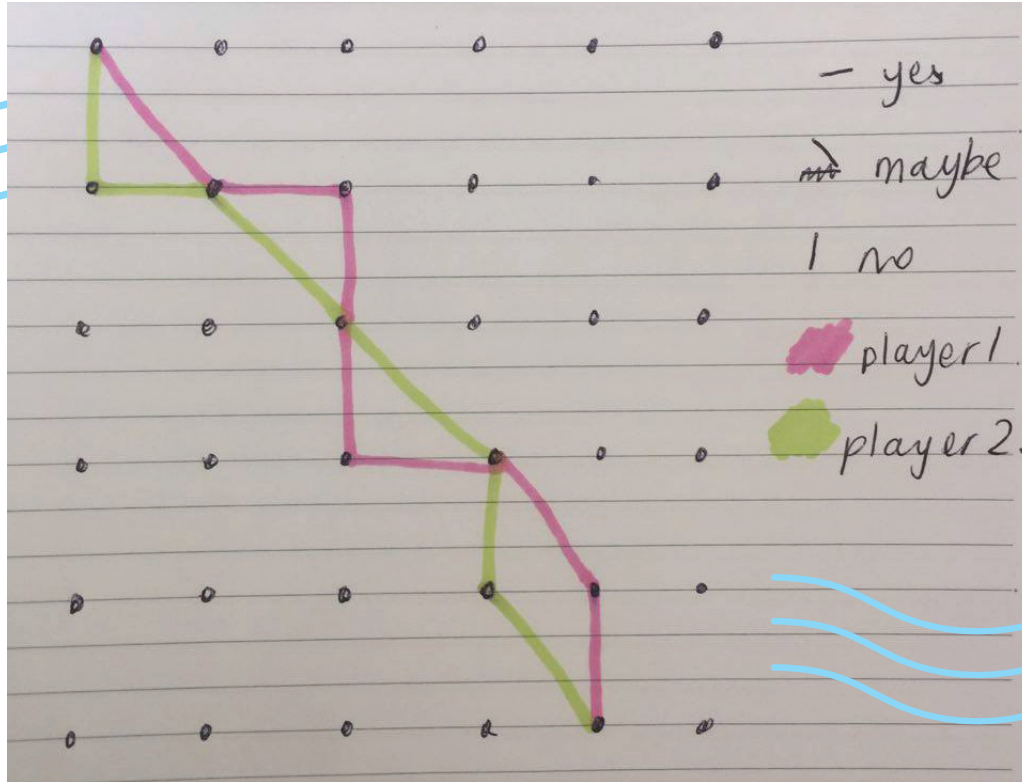 — yes
\ maybe
| no
player 1
player 2.